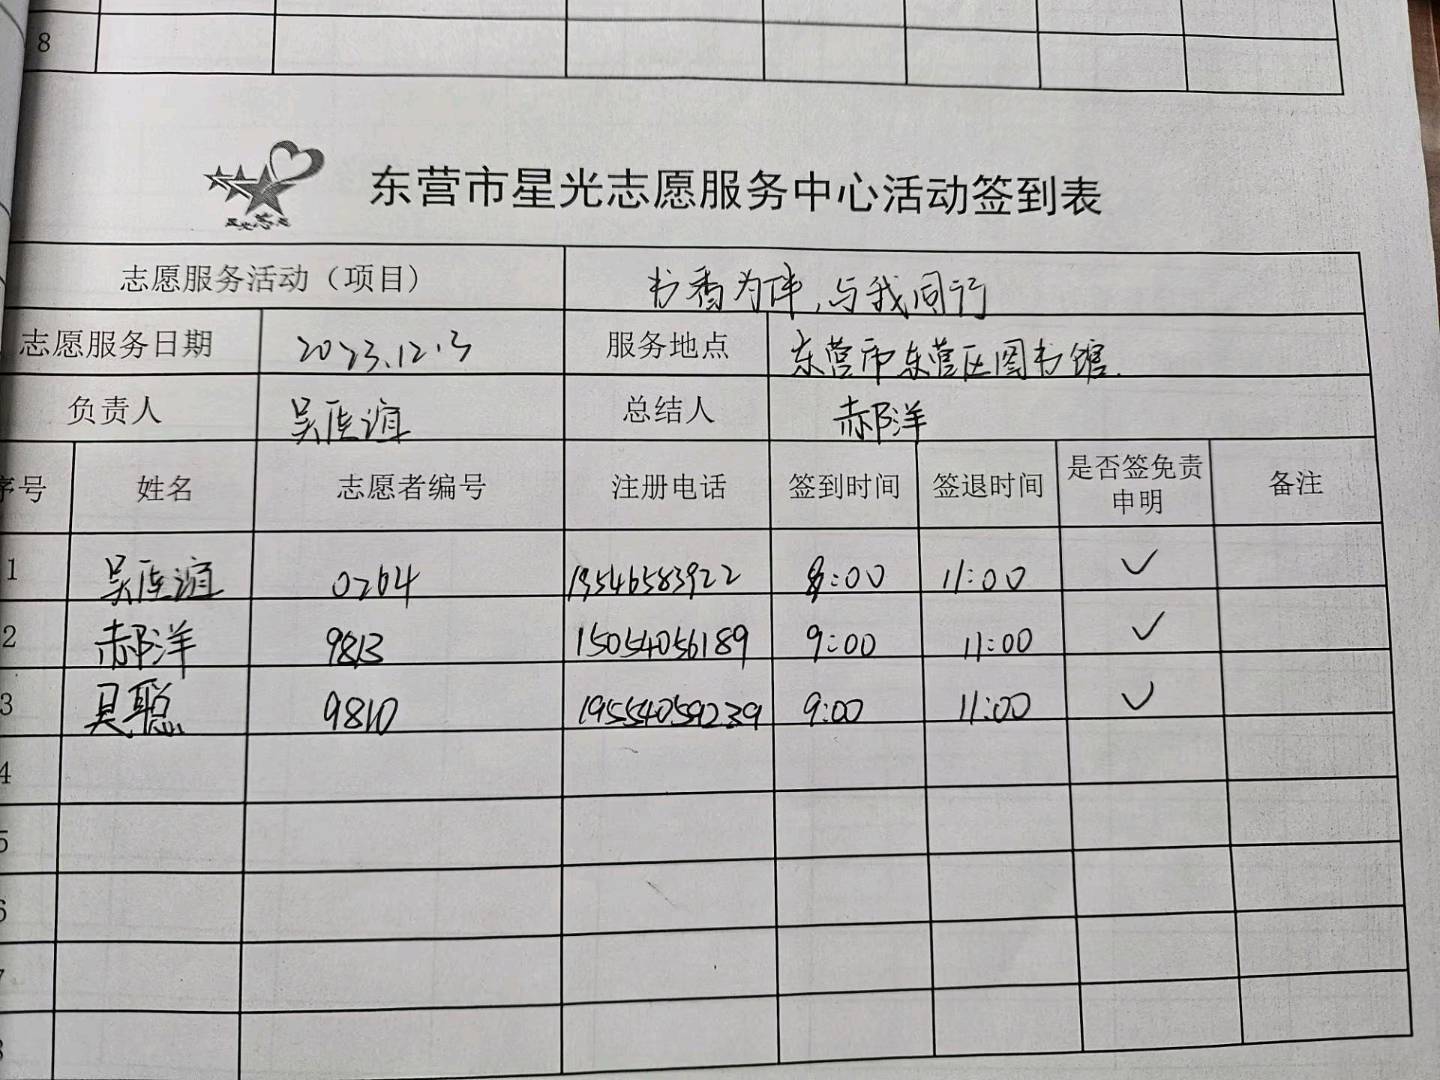 8
东营市星光志愿服务中心活动签到表
志愿服务活动（项目） 书香为伴,与我同行
志愿服务日期 2023.12.3 服务地点 东营市东营区图书馆.
负责人 吴 谊 总结人 郝洋
序号 姓名 志愿者编号 注册电话 签到时间 签退时间 是否签免责申明 备注
1 吴 谊 0264 19546583922 :00 11:00 ✓
2 郝洋 9813 15054056189 9:00 11:00 ✓
3 吴聪 9810 19554059239 9:00 11:00 ✓
4
5
6
7
8